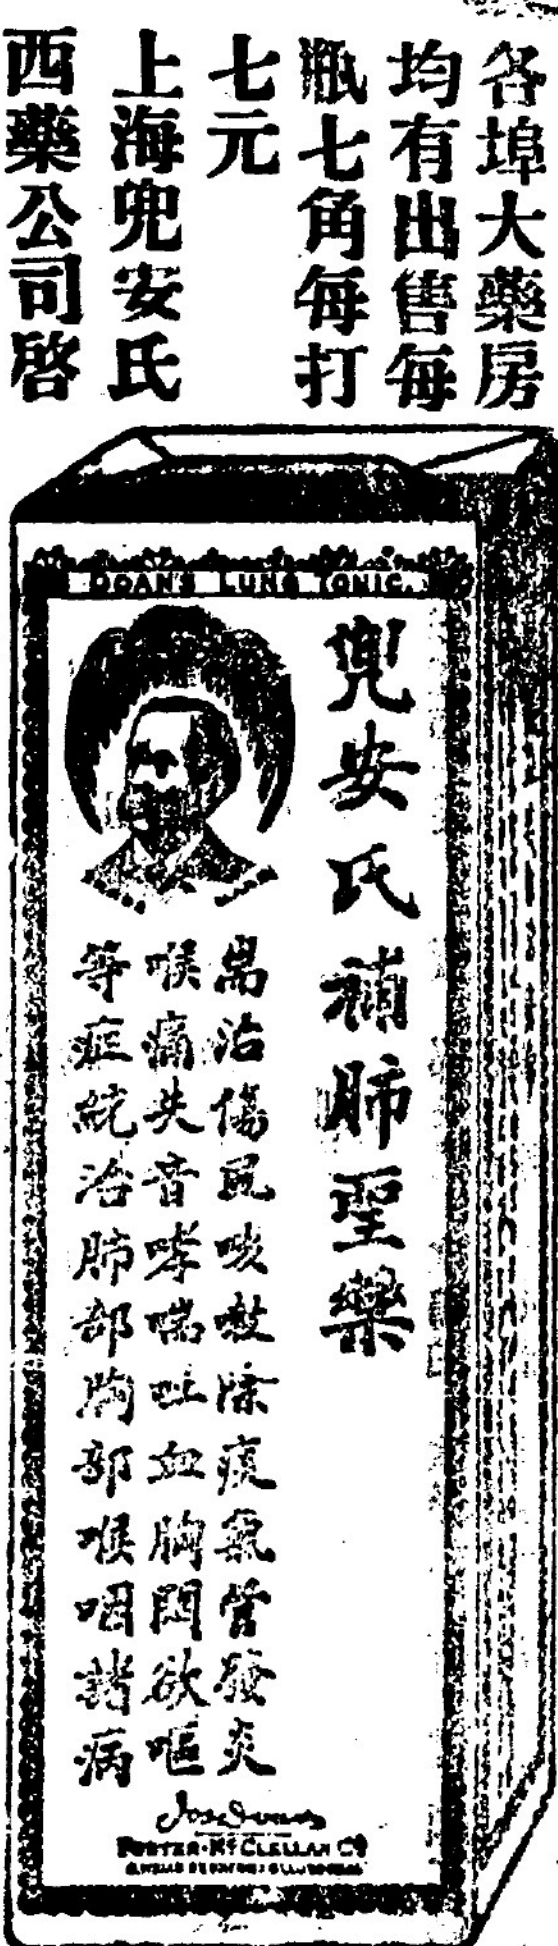 各埠大藥房
均有出售每
瓶七角每打
七元
上海兜安氏
西藥公司啓
DOAN'S LUNG TONIC.
兜安氏補肺聖藥
耑治傷風咳嗽除痰氣管發炎
喉痛失音哮喘吐血胸悶欲嘔
等症統治肺部胸部喉咽諸病
FOSTER-McCLELLAN Co